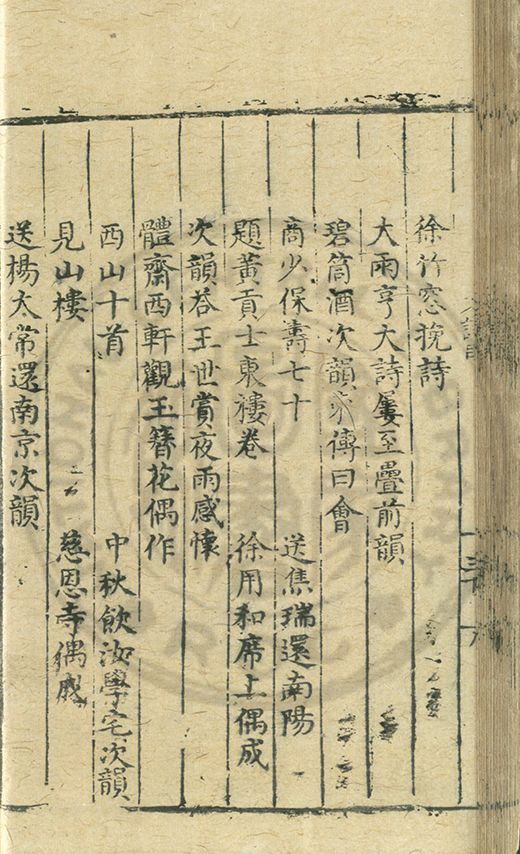 徐竹窓挽詩
大雨亨大詩屢至疊前韻
碧筒酒次韻京傳曰會
商少保壽七十　送焦瑞還南陽
題黃貢士東樓卷　徐用和席上偶成
次韻荅王世賞夜雨感懷
體齋西軒觀玉簪花偶作
西山十首　中秋飲汝學宅次韻
見山樓　慈恩寺偶成
送楊太常還南京次韻